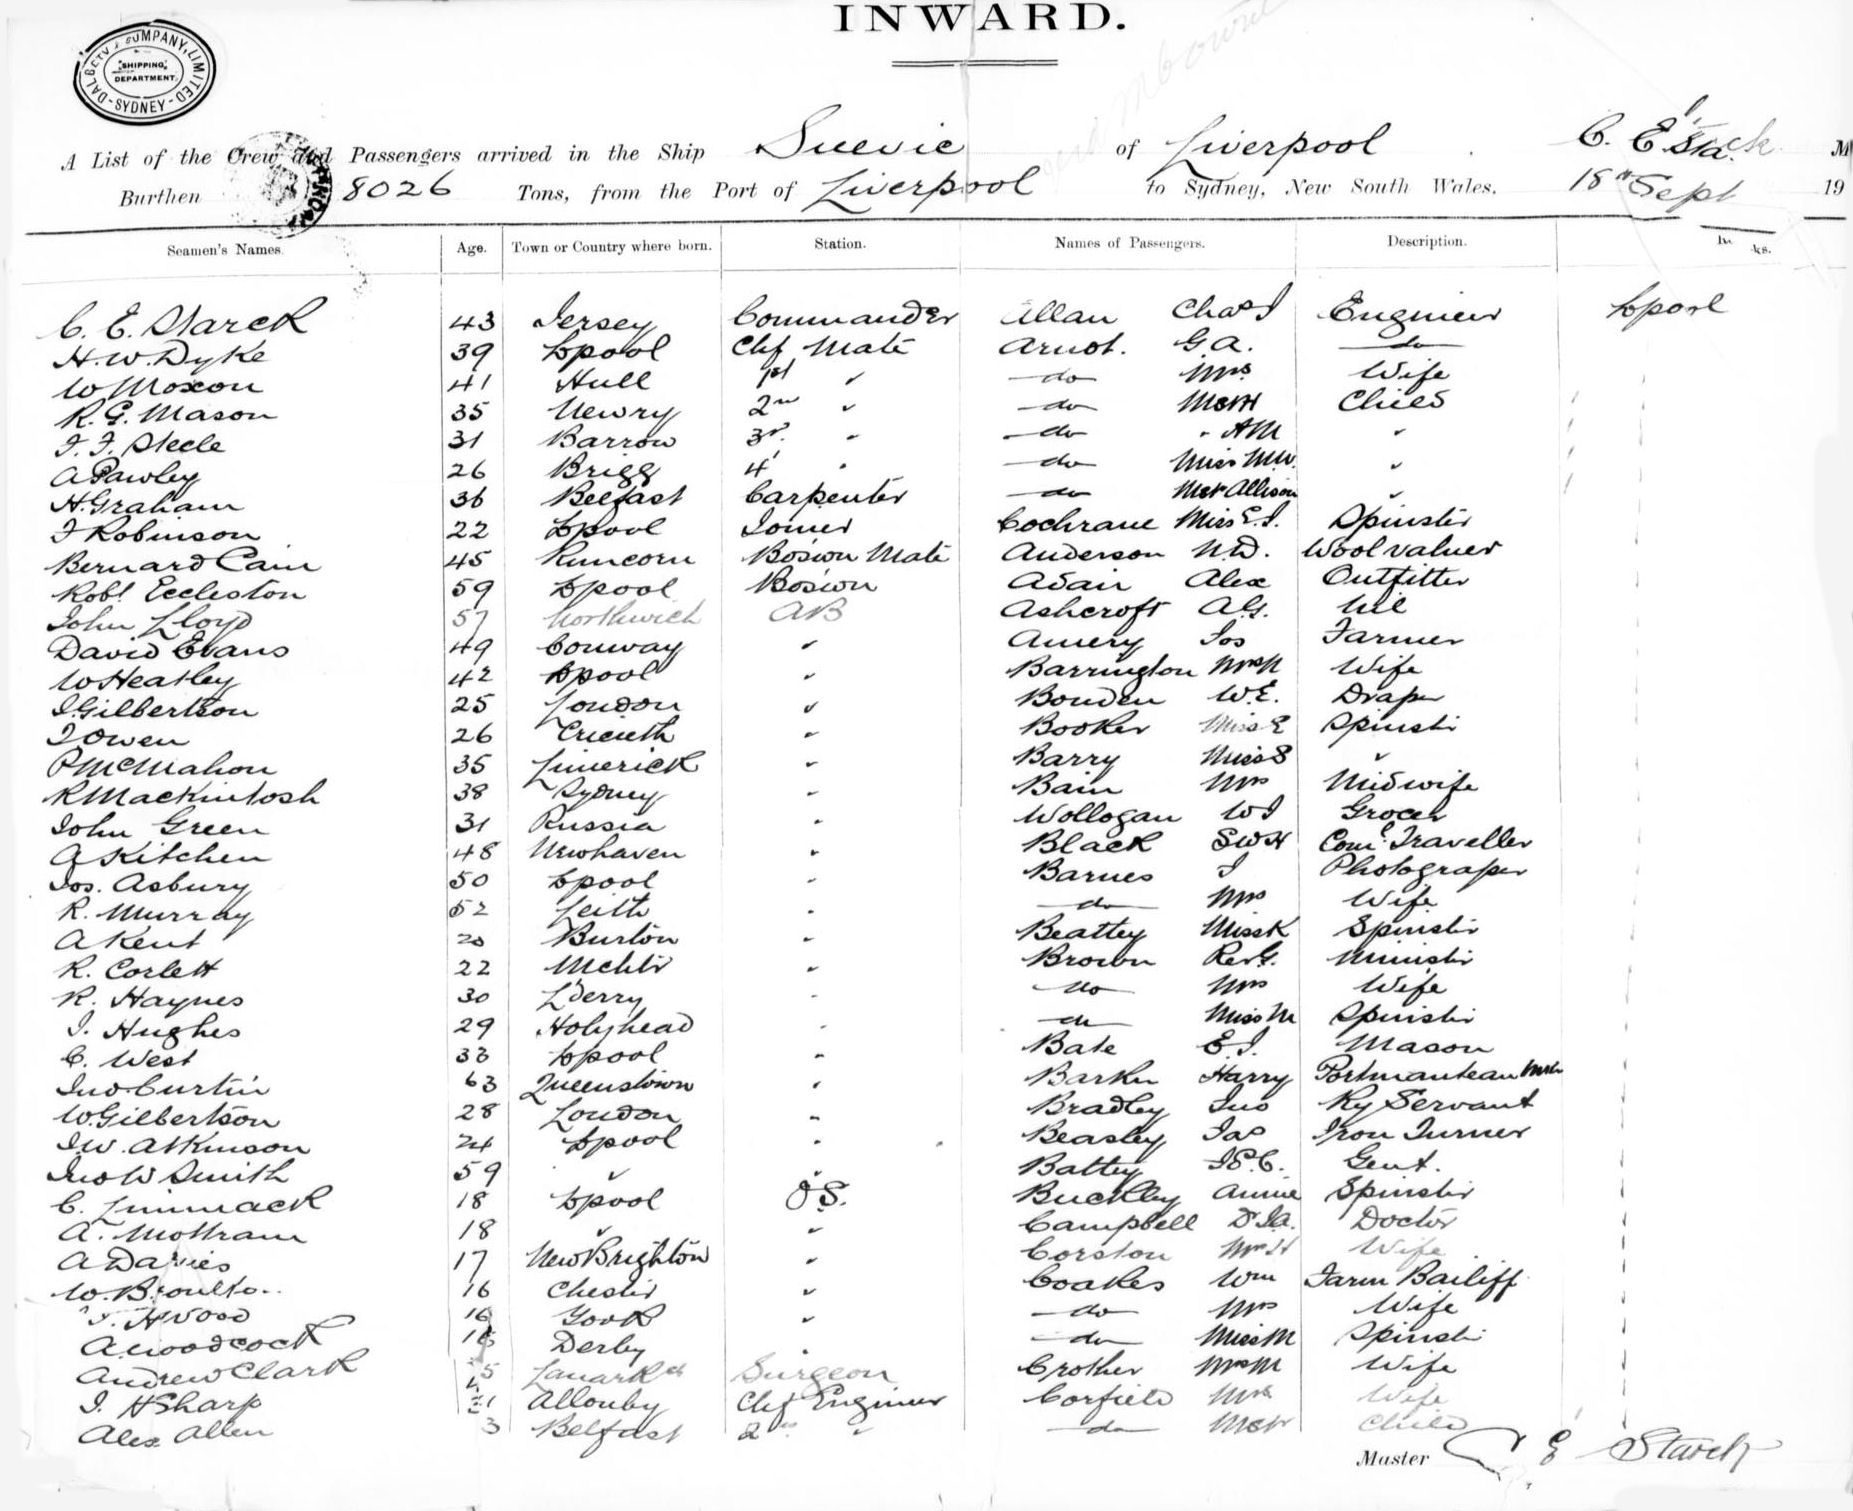 INWARD.
DALGETY & COMPANY, LIMITED
SHIPPING DEPARTMENT
SYDNEY
A List of the Crew and Passengers arrived in the Ship Suevic of Liverpool C. E. Starck M
Burthen 8026 Tons, from the Port of Liverpool to Sydney, New South Wales. 18th Sept 19
Seamen's Names. Age. Town or Country where born. Station. Names of Passengers. Description. ks.
C. E. Starck 43 Jersey Commander Allan Chas J Engineer Lpool
H. W. Dyke 39 Lpool Chf Mate Arnot. G. A. do
W Moxon 41 Hull 1st " do Mrs Wife
R. G. Mason 35 Newry 2nd " do Mstr H Child
J. F. Steele 31 Barrow 3rd " do " A M "
A Pawley 26 Brigg 4 " do Miss M W. "
H. Graham 36 Belfast Carpenter do Mstr Allison "
J Robinson 22 Lpool Joiner Cochrane Miss E. J. Spinster
Bernard Cain 45 Runcorn Bosion Mate Anderson N. D. Wool valuer
Robt Eccleston 59 Lpool Bosion Adair Alex Outfitter
John Lloyd 57 Northwich AB Ashcroft A. G. Nil
David Evans 49 Conway " Amery Jos Farmer
W Heatley 42 Lpool " Barrington Mrs N Wife
J. Gilbertson 25 London " Bowden W. E. Draper
J Owen 26 Cricieth " Booker Miss E Spinstr
P McMahon 35 Limerick " Barry Miss S "
R Mackintosh 38 Sydney " Bain Mrs Midwife
John Green 31 Russia " Wollogan W J Grocer
A Kitchen 48 Newhaven " Black S W H Coml Traveller
Jos. Asbury 50 Lpool " Barnes J Photograper
R. Murray 52 Leith " do Mrs Wife
A Kent 20 Burton " Beattey Miss K Spinstr
R. Corlett 22 Mchtr " Brown Rev G. Ministr
R. Haynes 30 L'derry " do Mrs Wife
J. Hughes 29 Holyhead " do Miss M Spinstr
C. West 33 Lpool " Bate E. J. Mason
Jno Curtin 63 Queenstown " Barker Harry Portmanteau Mkr
W. Gilbertson 28 London " Bradley Jno Ry Servant
J. W. Atkinson 24 Lpool " Beasley Jas Iron Turner
Jno W Smith 59 " " Battey J. E. C. Gent.
C. Limmack 18 Lpool O.S. Buckley Annie Spinstr
A. Mottram 18 " " Campbell Dr J. A. Doctor
A Davies 17 New Brighton " Corston Mrs H Wife
W. 16 Chestr " Coakes Wm Farm Bailiff
H Wood 16 York " do Mrs Wife
A. Woodcock 18 Derby " do Miss M Spinstr
Andrew Clark Lanark Surgeon Crother Mrs M Wife
J. H Sharp Allonby Chf Engineer Corfield Mrs Wife
Alex Allen Belfast 2nd " do Mstr Child
Master C E Starck